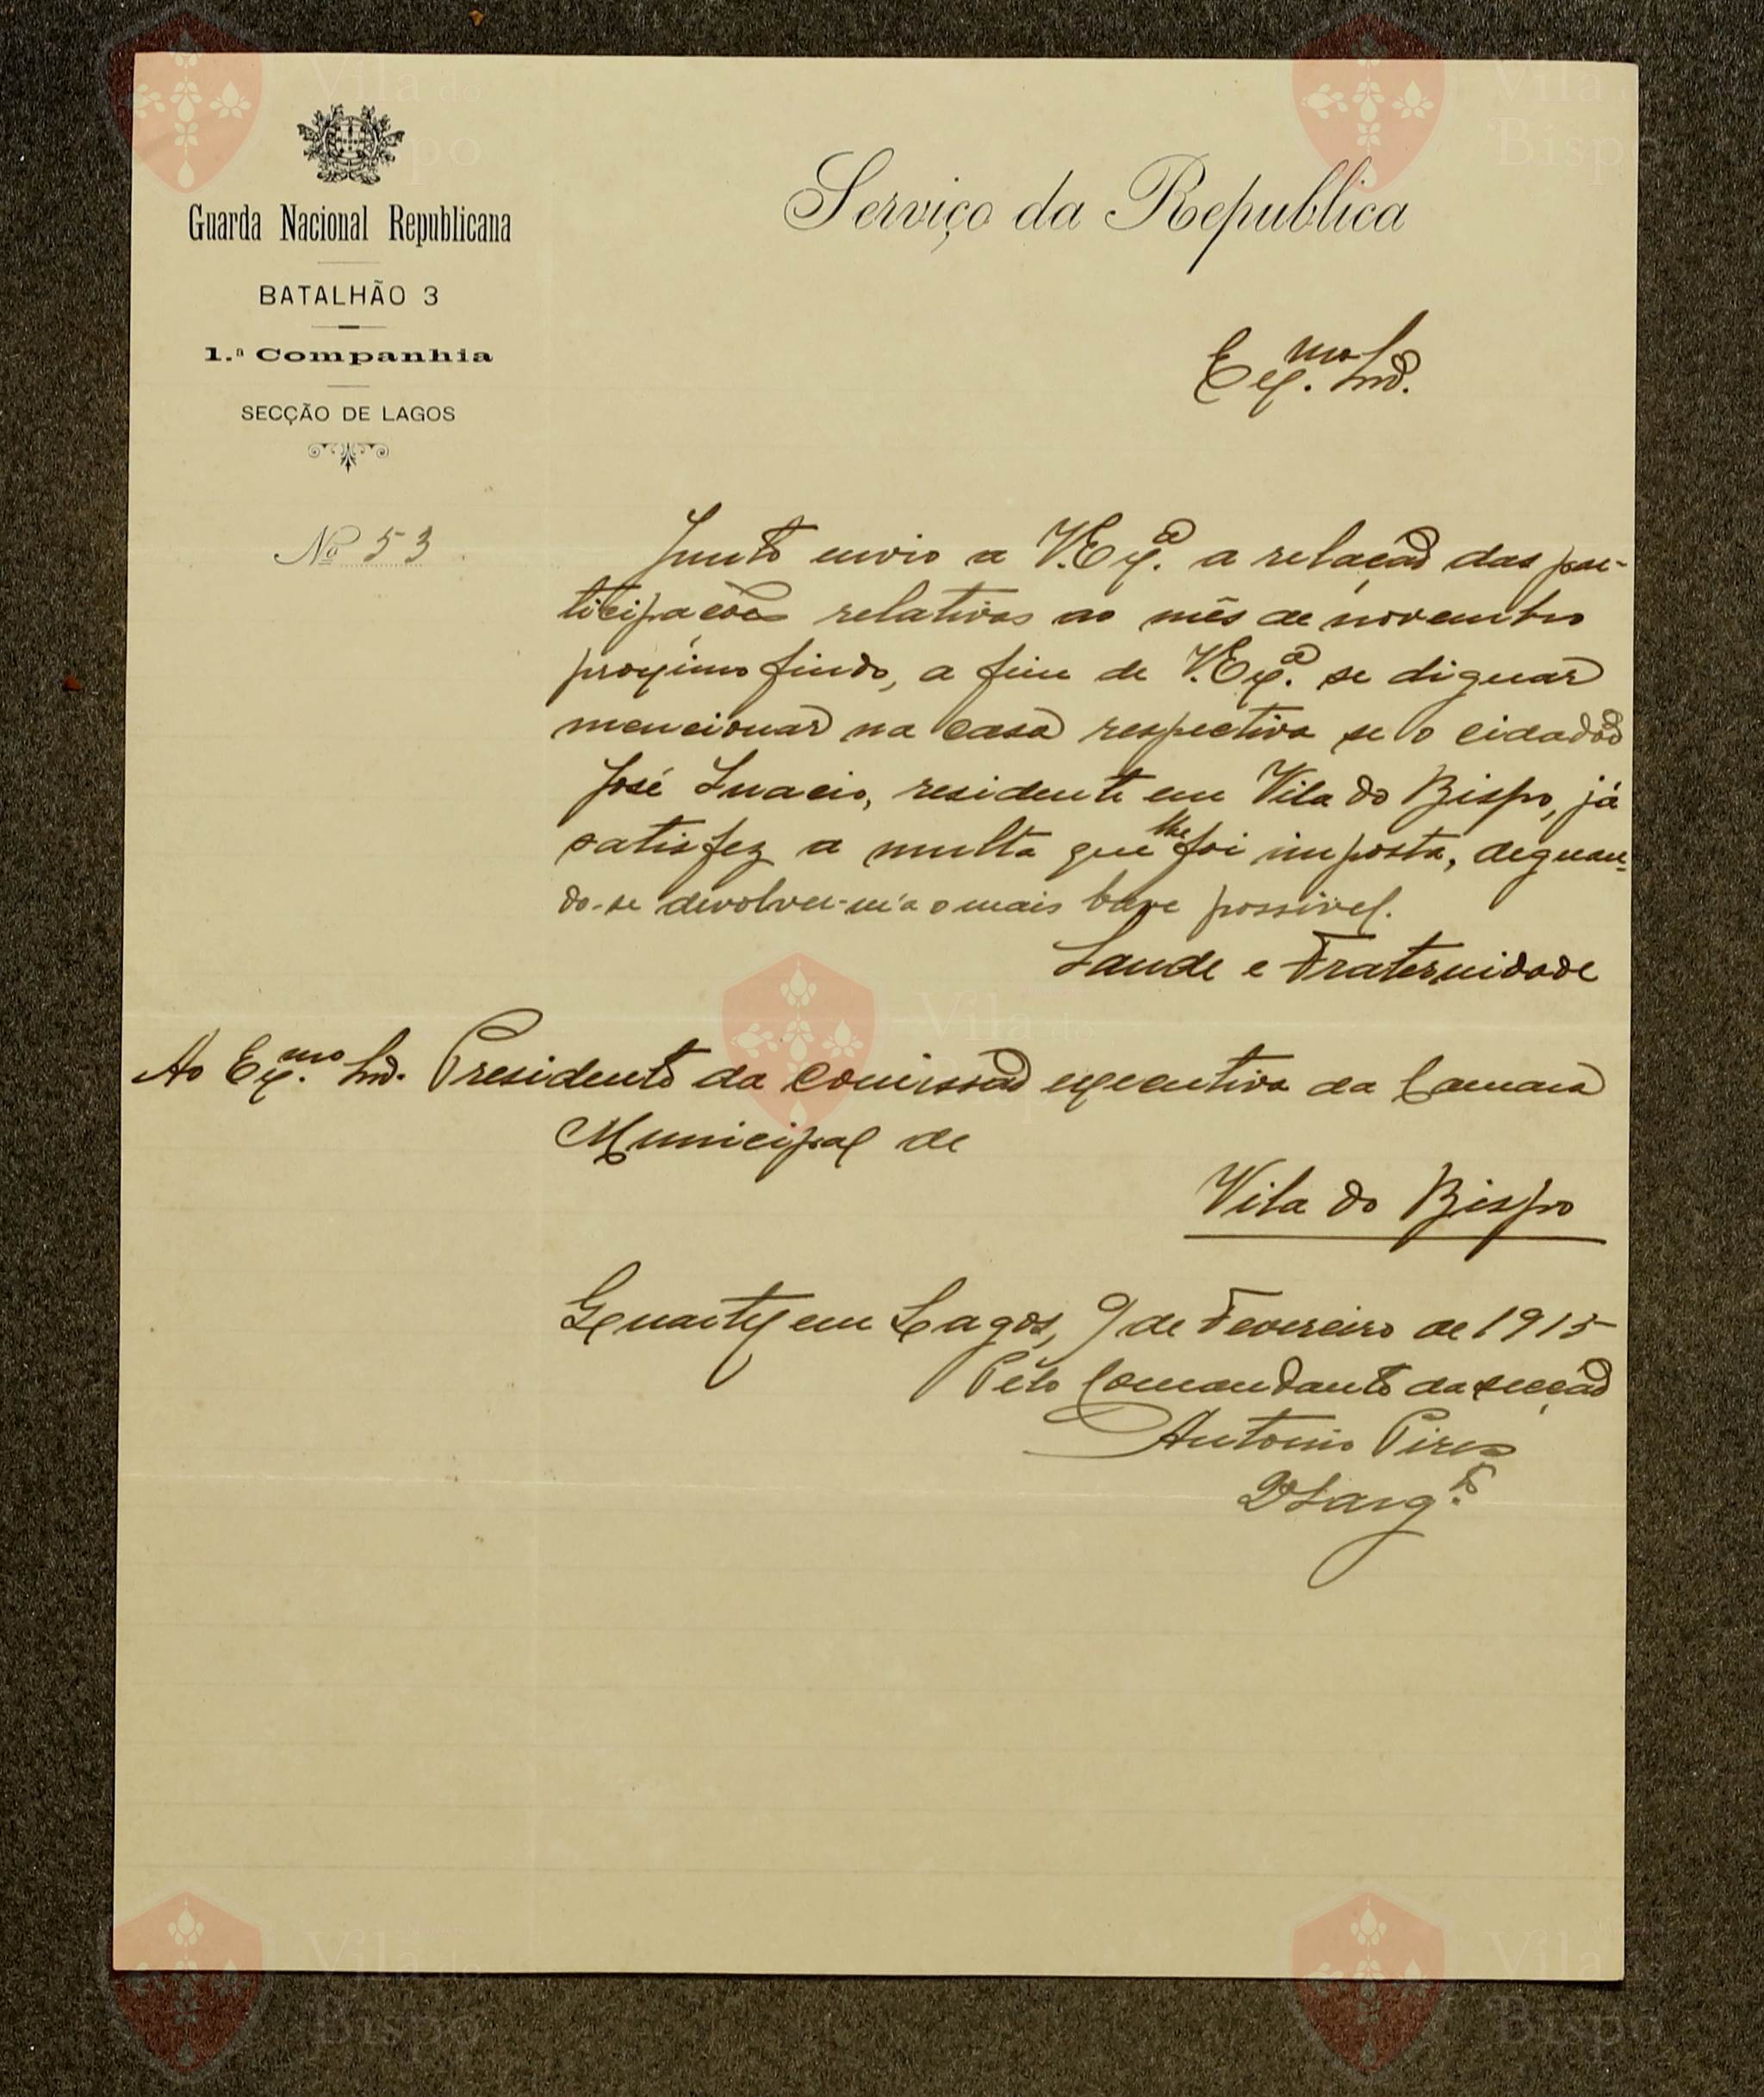 Guarda Nacional Republicana
BATALHÃO 3
1.ª Companhia
SECÇÃO DE LAGOS
Nº 53
Serviço da Republica
Exmo. Snr.
Junto envio a V. Exª. a relação das par-
ticipações relativas ao mês de novembro
proximo findo, a fim de V. Exª. se dignar
mencionar na casa respectiva se o cidadão
José Inacio, residente em Vila do Bispo, já
satisfez a multa que lhe foi imposta, dignan-
do-se devolver-m'a o mais breve possivel.
Saude e Fraternidade
Ao Exmo. Snr. Presidente da comissão executiva da Camara
Municipal de
Vila do Bispo
Quartel em Lagos, 9 de Fevereiro de 1915
Pelo Comandante da secção
Antonio Pires
2º Sargto.
Vila do Bispo
Vila do Bispo
Vila do Bispo
Vila do Bispo
Vila do Bispo